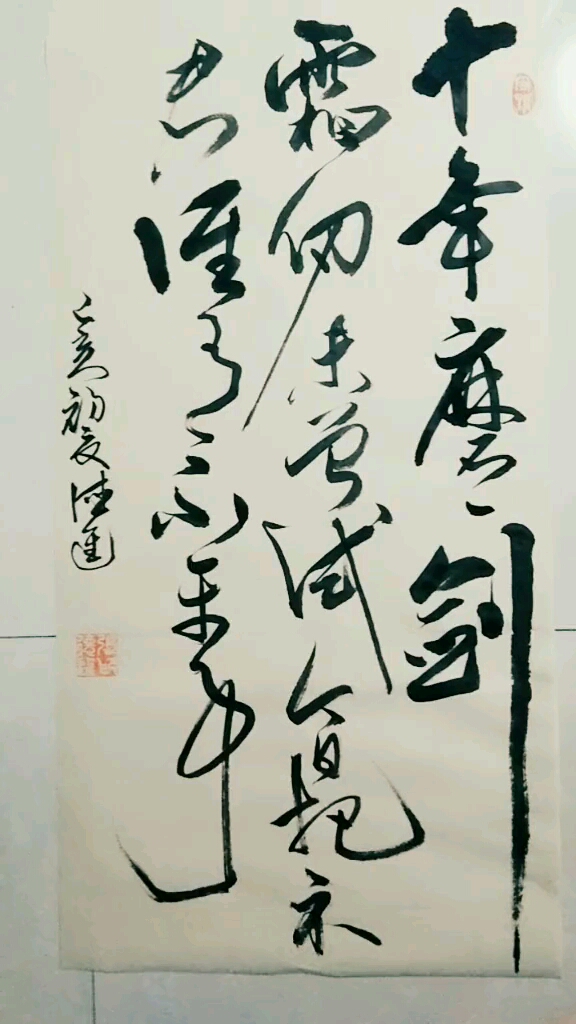 十年磨一剑
霜仞未曾试今日把示
君谁有不平事
亥初夏